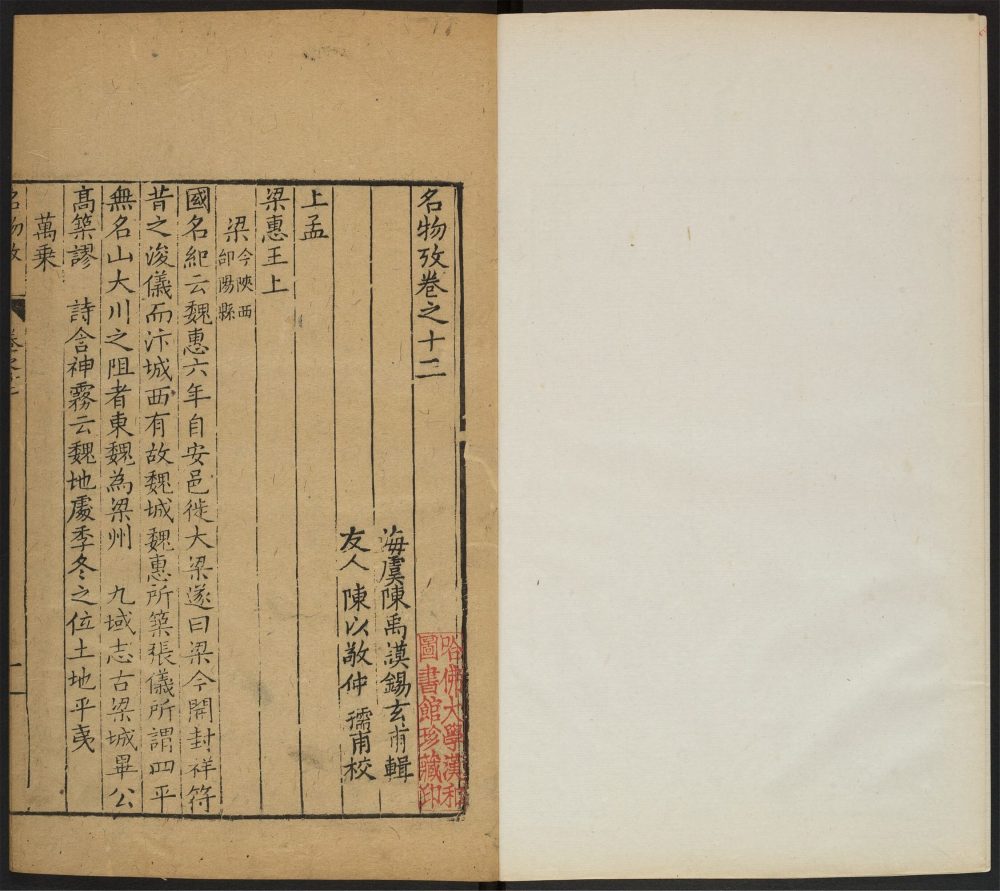 名物攷卷之十二
海虞陳禹謨錫玄甫輯
友人陳以敬仲孺甫校
上孟
梁惠王上
梁今陜西郃陽縣
國名紀云魏惠六年自安邑徙大梁遂曰梁今開封祥符
昔之浚儀而汴城西有故魏城魏惠所築張儀所謂四平
無名山大川之阻者東魏為梁州 九域志古梁城畢公
髙築謬 詩含神霧云魏地處季冬之位土地平夷
萬乗
名物攷
哈佛大學漢和
圖書館珍藏印